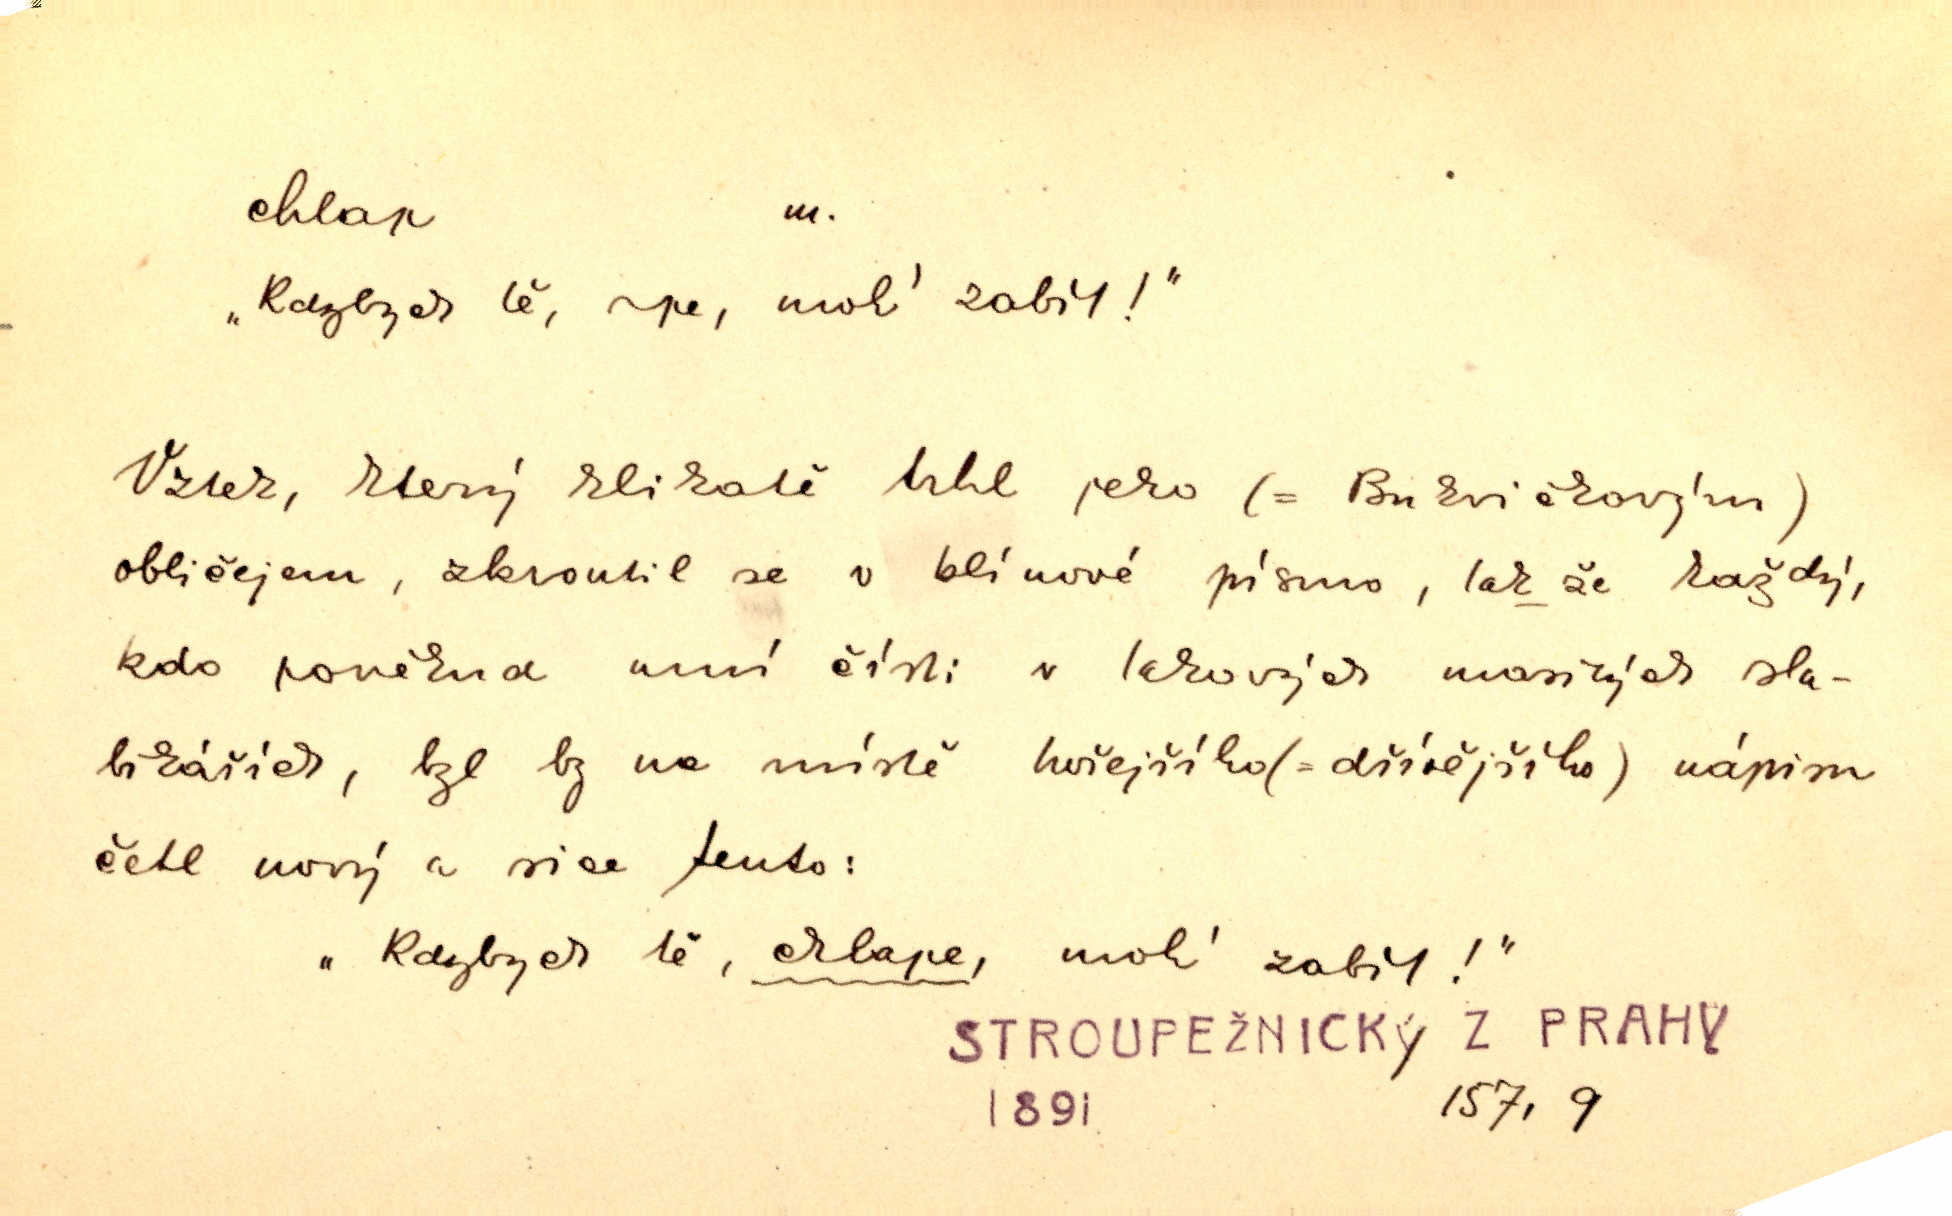 chlap m.
„Kdybych tě, ~pe, moh' zabít!"
Vztek, který klikatě trhl jeho (= Bukvičkovým)
obličejem, zkroutil se v klínové písmo, tak že každý,
kdo poněkud umí čísti v takových masitých sla-
bikářích, byl by na místě hořejšího (= dřívějšího) nápisu
četl nový a sice tento:
„Kdybych tě, chlape, moh' zabít!"
STROUPEŽNICKý Z PRAHY
1891 157, 9